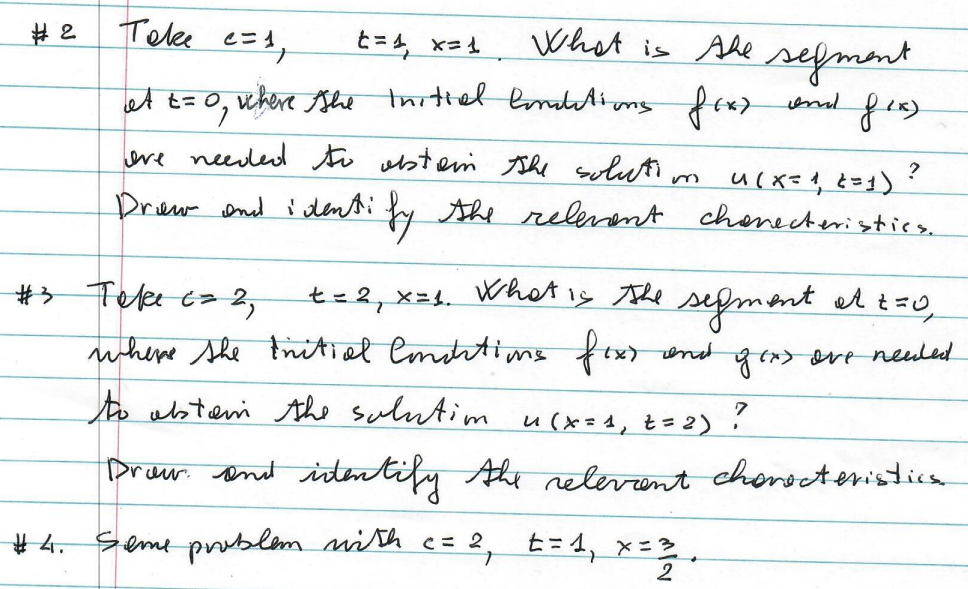 #2 Take c=1, t=1, x=1. What is the segment
at t=0, where the Initial Conditions f(x) and f(x)
are needed to obtain the solution u(x=1, t=1)?
Draw and identify the relevant characteristics.
#3 Take c=2, t=2, x=1. What is the segment at t=0,
where the Initial Conditions f(x) and g(x) are needed
to obtain the solution u(x=1, t=2)?
Draw and identify the relevant characteristics
#4. Same problem with c=2, t=1, x=3/2.